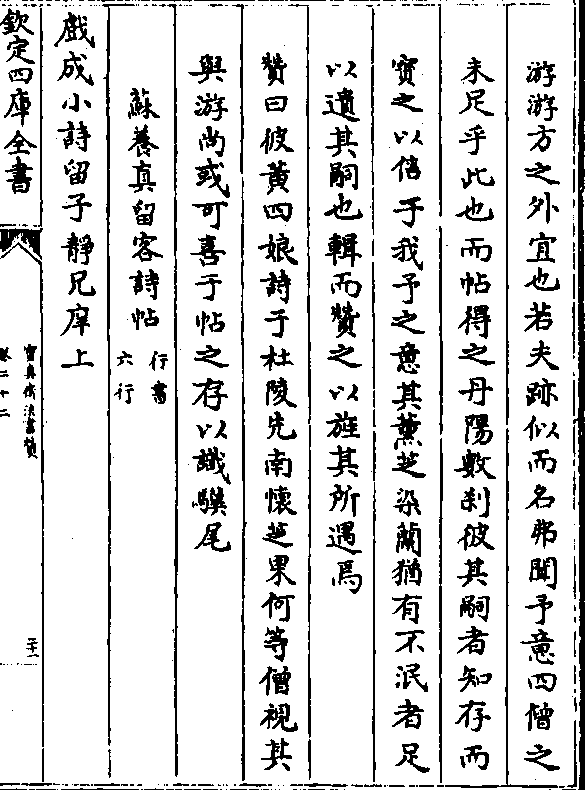 游游方之外宜也若夫跡似而名弗聞予意四僧之
未足乎此也而帖得之丹陽數刹彼其嗣者知存而
寶之以信于我予之意其薰芝染蘭猶有不泯者足
以遺其嗣也輯而贊之以旌其所遇焉
贊曰彼黃四娘詩于杜陵先南懷芝果何等僧視其
與游尚或可喜于帖之存以識驥尾
蘇養真留客詩帖
行書
六行
戲成小詩留子靜兄庠上
欽定四庫全書
寶真齋法書贊
卷二十二